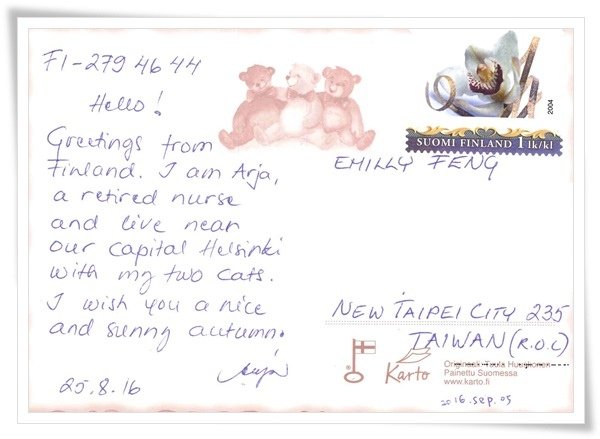 FI-2794644
Hello!
Greetings from
Finland. I am Arja,
a retired nurse
and live near
our capital Helsinki
with my two cats.
I wish you a nice
and sunny autumn.
Arja
25.8.16
2004
SUOMI FINLAND 1 lk/kl
EMILLY FENG
NEW TAIPEI CITY 235
TAIWAN (R.O.C)
Karto
Originaali: Tuula
Painettu Suomessa
www.karto.fi
2016.sep.05